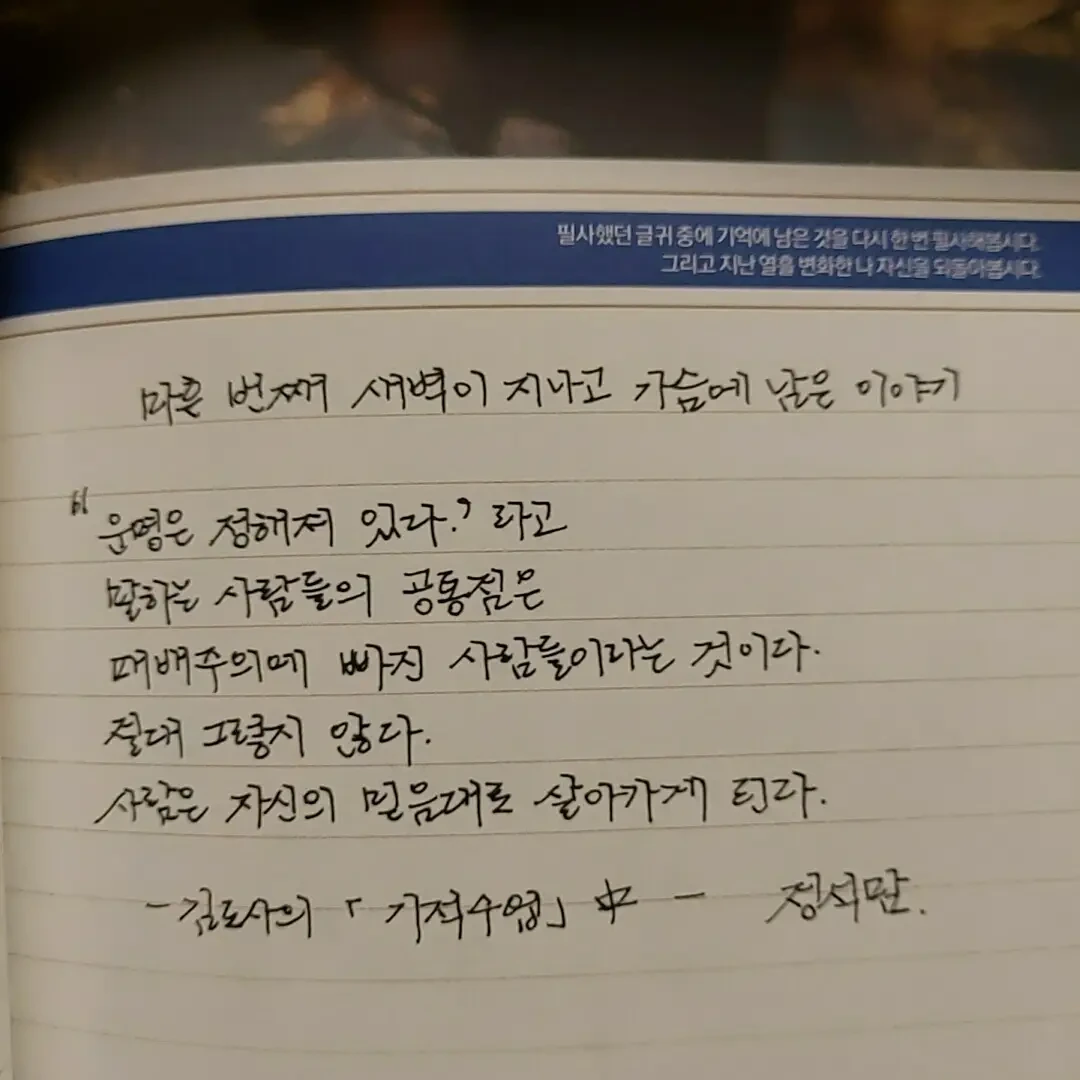 필사했던 글귀 중에 기억에 남은 것을 다시 한 번 필사해봅시다.
그리고 지난 열흘 변화한 나 자신을 되돌아봅시다.
마흔 번째 새벽이 지나고 가슴에 남은 이야기
“운명은 정해져 있다.” 라고
말하는 사람들의 공통점은
패배주의에 빠진 사람들이라는 것이다.
절대 그렇지 않다.
사람은 자신의 믿음대로 살아가게 된다.
- 김도사의 「기적수업」 中 - 정석만.